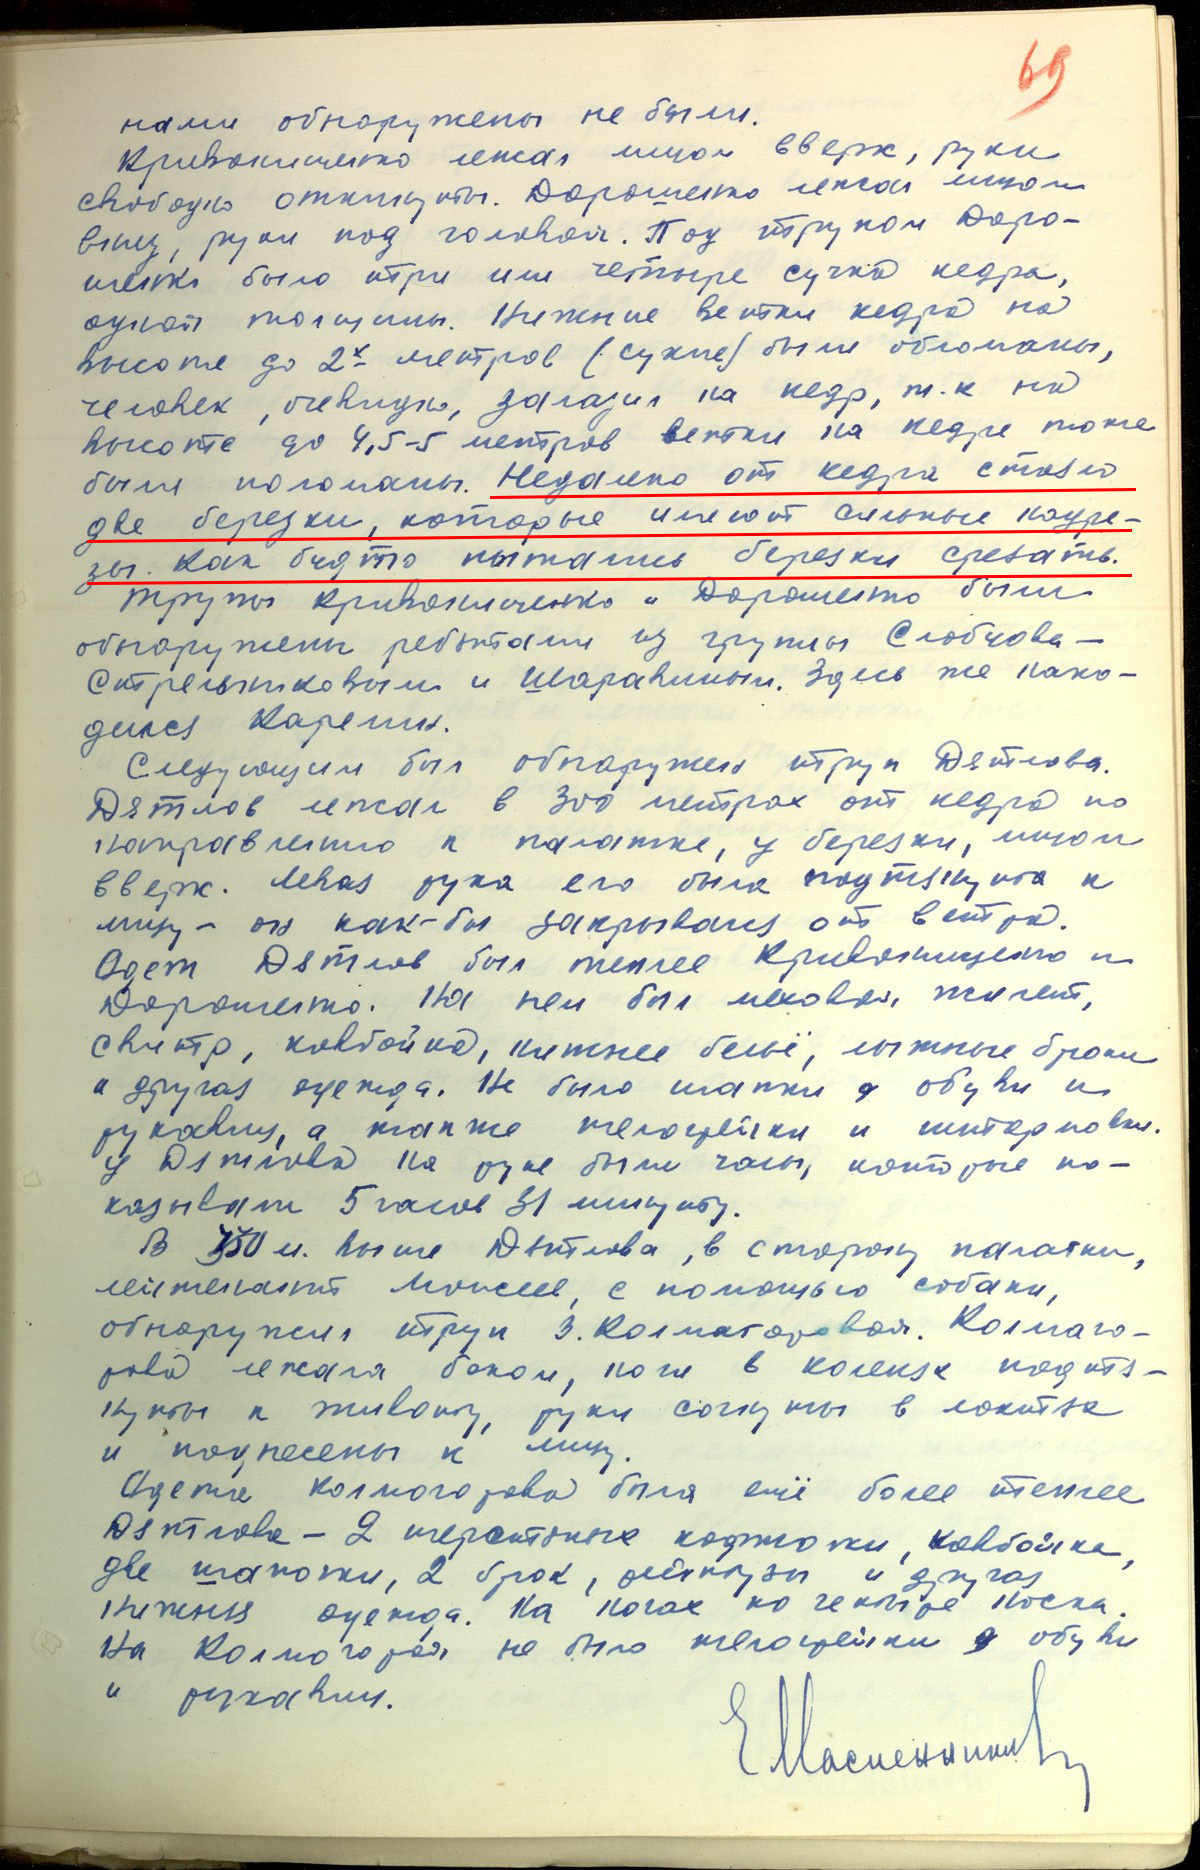 69
нами обнаружены не были.
Кривонищенко лежал лицом вверх, руки
свободно откинуты. Дорошенко лежал лицом
вниз, руки под головой. Под трупом Доро-
шенко было три или четыре сучка кедра,
одной толщины. Нижние ветки кедра на
высоте до 2х метров (сухие) были обломаны,
человек, очевидно, залазил на кедр, т.к на
высоте до 4,5-5 метров ветки на кедре тоже
были поломаны. Недалеко от кедра стояло
две березки, которые имеют сильные надре-
зы. Как будто пытались березки срезать.
Трупы Кривонищенко и Дорошенко были
обнаружены ребятами из группы Слобцова –
Стрельниковым и Шаравиным. Здесь же нахо-
дился Карелин.
Следующим был обнаружен труп Дятлова.
Дятлов лежал в 300 метрах от кедра по
направлению к палатке, у березки, лицом
вверх. Левая рука его была подтянута к
лицу – он как-бы закрывался от ветра.
Одет Дятлов был теплее Кривонищенко и
Дорошенко. На нем был меховой жилет,
свитр, ковбойка, нижнее бельё, лыжные брюки
и другая одежда. Не было шапки, обуви и
рукавиц, а также телогрейки и штормовки.
У Дятлова на руке были часы, которые по-
казывали 5 часов 31 минуту.
В 350 м. выше Дятлова, в сторону палатки,
лейтенант Моисеев, с помощью собаки,
обнаружил труп З. Колмагоровой. Колмаго-
рова лежала боком, ноги в коленях подтя-
нуты к животу, руки согнуты в локтях
и поднесены к лицу.
Одета Колмогорова была ещё более теплее
Дятлова – 2 шерстяные кофточки, ковбойка,
две шапочки, 2 брюк, рейтузы и другая
нижняя одежда. На ногах по четыре носка.
На Колмогорой не было телогрейки, обуви
и рукавиц.
Е Масленников